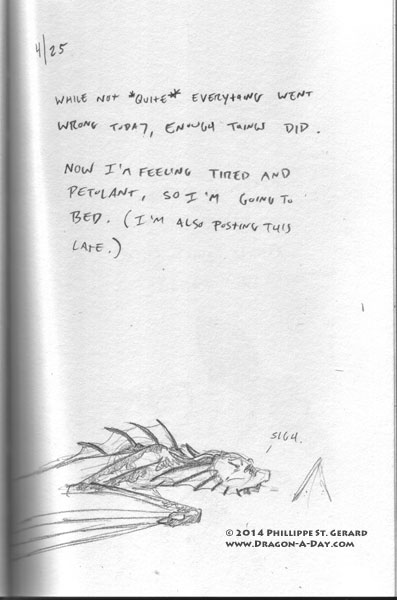 4/25
WHILE NOT *QUITE* EVERYTHING WENT
WRONG TODAY, ENOUGH THINGS DID.
NOW I'M FEELING TIRED AND
PETULANT, SO I'M GOING TO
BED. (I'M ALSO POSTING THIS
LATE.)
SIGH.
© 2014 PHILLIPPE ST. GERARD
WWW.DRAGON-A-DAY.COM